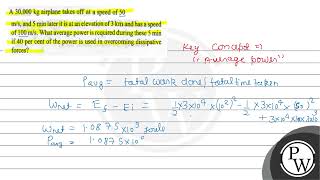 A 30,000 kg airplane takes off at a speed of 50
m/s, and 5 min later it is at an elevation of 3 km and has a
speed of 100 m/s. What average power is required during these 5 min
if 40 per cent of the power is used in overcoming dissipative
forces?
Key Concept =>
"Average power"
Pavg = total work done / total time taken
Wnet = Ef - Ei = 1/2 × 3×10⁴ × (10²)² - 1/2 × 3×10⁴ × (50)²
+ 3×10⁴ ×10×3×10³
Wnet = 1.0875 ×10⁹ Joule
Pavg = 1.0875×10⁹
PW